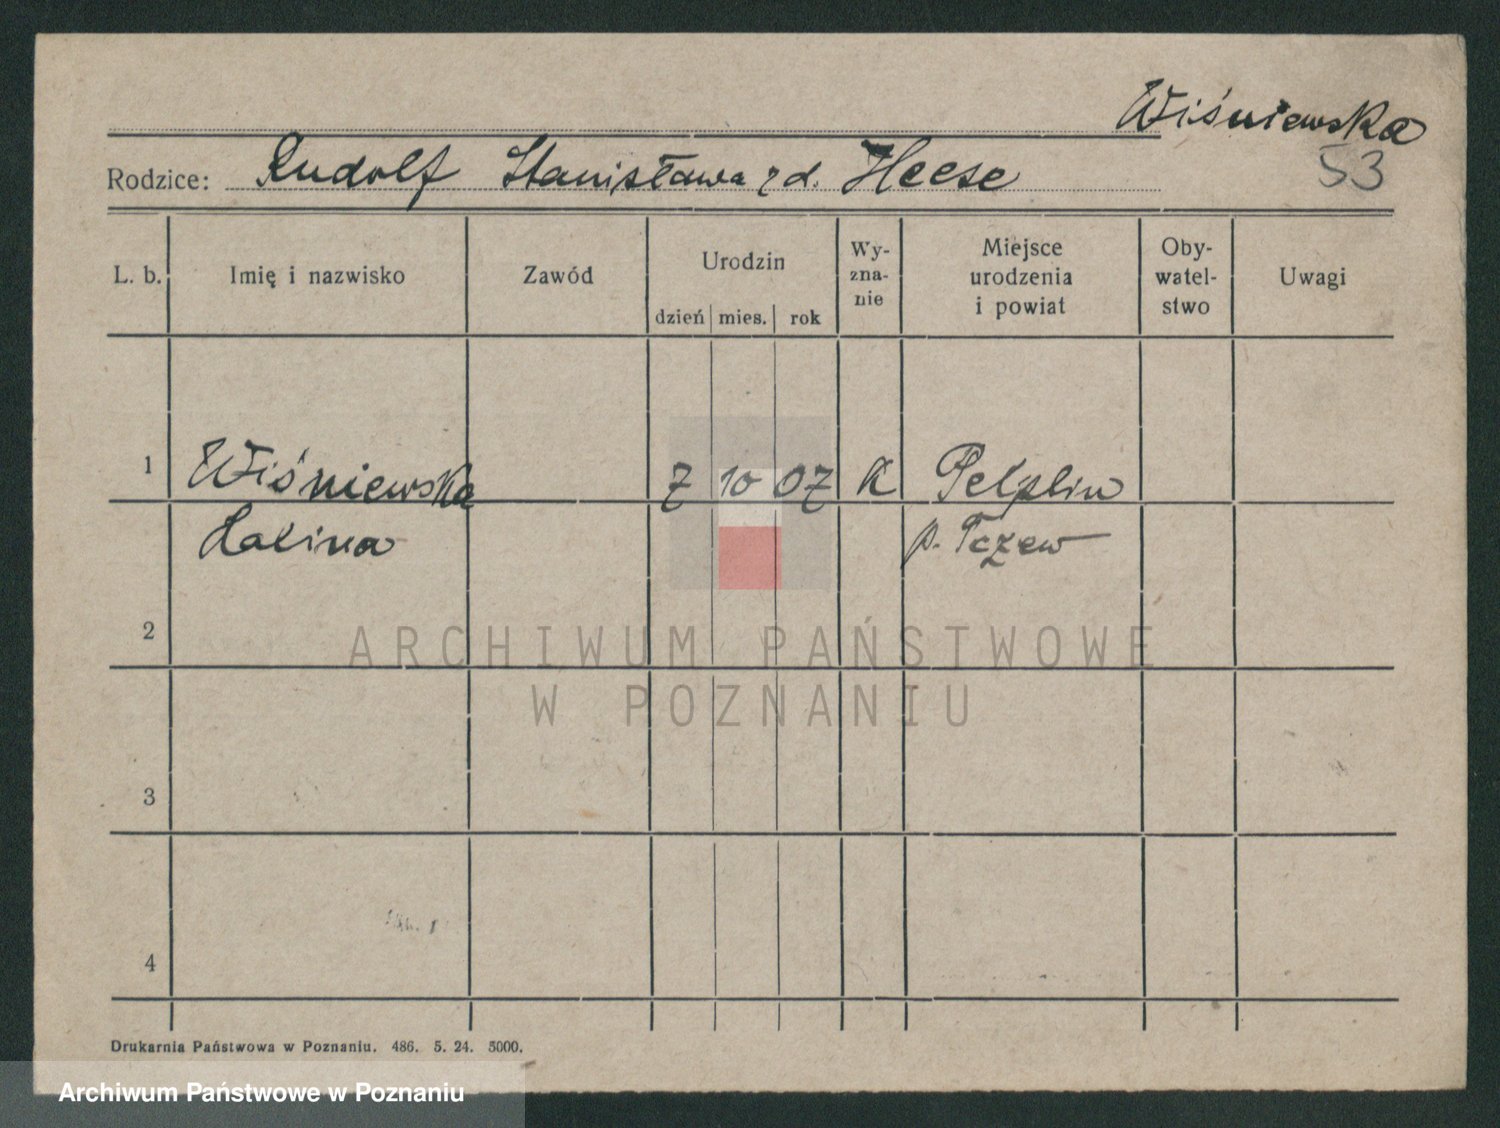 Wiśniewska
Rodzice: Rudolf Stanisława z d. Heese
53
L. b. Imię i nazwisko Zawód Urodzin dzień mies. rok Wy-zna-nie Miejsce urodzenia i powiat Oby-watel-stwo Uwagi
1 Wiśniewska 7 10 07 K Pelplin
Halina p. Tczew
2
ARCHIWUM PAŃSTWOWE
W POZNANIU
3
4
Drukarnia Państwowa w Poznaniu. 486. 5. 24. 5000.
Archiwum Państwowe w Poznaniu